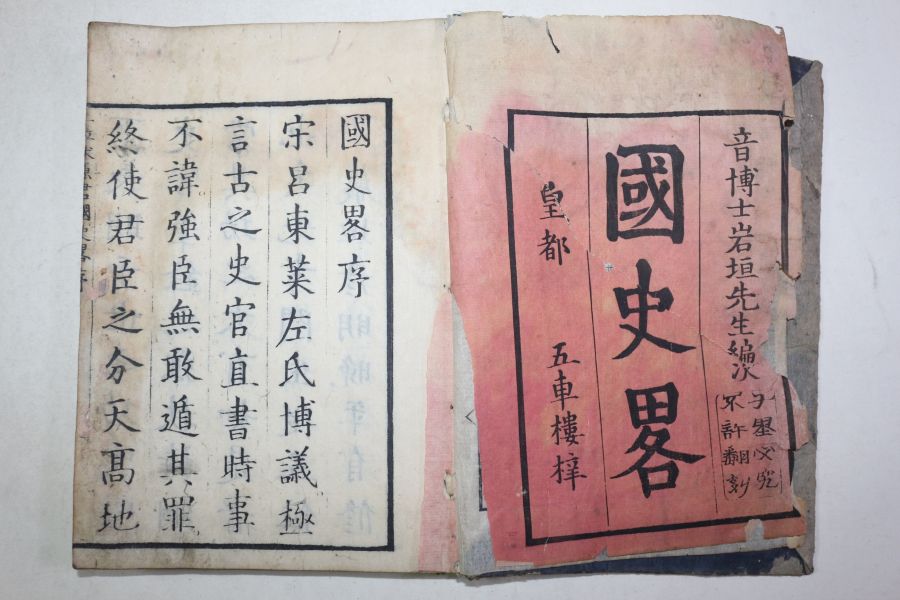 音博士岩垣先生編次
不許翻刻
國史畧
皇都 五車樓梓
國史畧序
宋呂東萊左氏博議極
言古之史官直書時事
不諱強臣無敢遁其罪
終使君臣之分天髙地